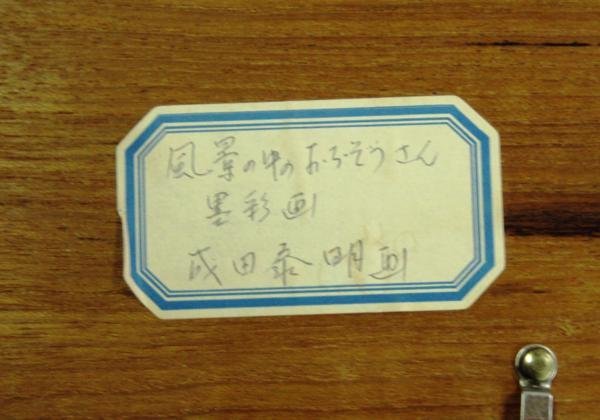 風景の中のおぢぞうさん
墨彩画
成田泰明画